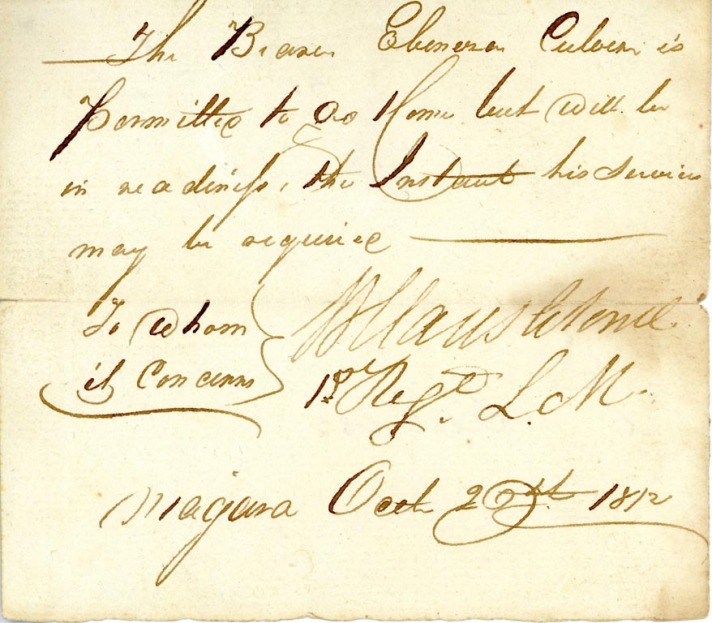 The Bearer Ebenezer Culver is
Permitted to go Home but will be
in readiness, the Instant his Services
may be required
To Whom
it Concerns
W Claus Lt Coll
1st Regt L. M.
Niagara Oct 1812